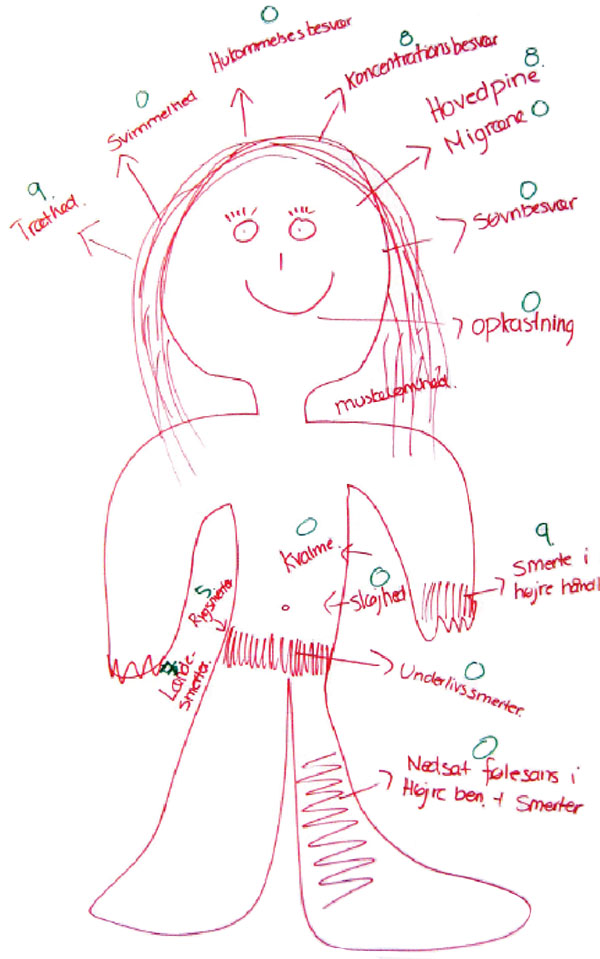 0
Hukommelsesbesvær
8
Koncentrationsbesvær
8.
Hovedpine
Migræne 0
0
Svimmelhed
9.
Træthed.
0
Søvnbesvær
0
opkastning
muskelømhed.
0
Kvalme.
0
Sløjhed
9.
Smerte i
højre håndl
5.
Rygsmerter
Lænde-
smerter.
0
Underlivssmerter.
0
Nedsat følesans i
Højre ben. + Smerter